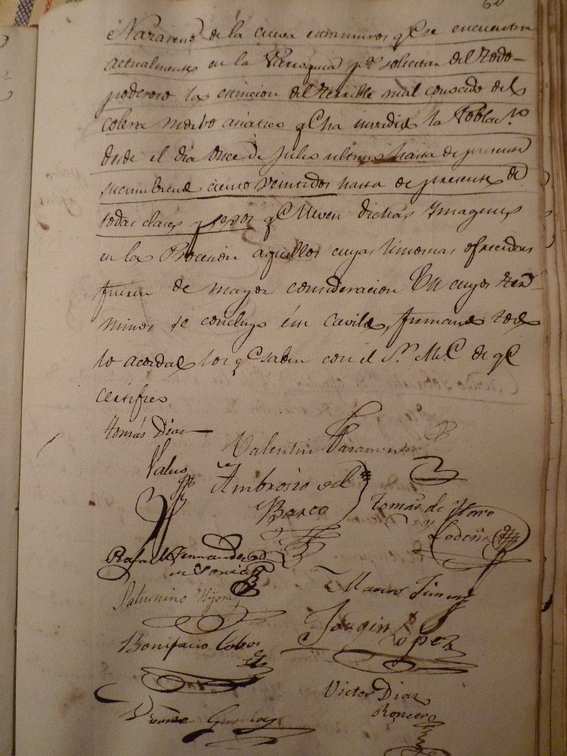 Nazareno de la Cueva extramuros qe. se encuentra
actualmente en la Parroquia pa. solicitar del Todo-
poderoso la estincion del terrible mal conocido del
colera morbo asiatico qe. ha invadido la Poblacn.
desde el dia once de Julio ultimo hasta de presente
sucumbiendo ciento veintidos hasta de presente de
todas clases y sexos qe. lleven dichas Imagenes
en la Procesion aquellos cuyas limosnas ofrecidas
fueren de mayor consideracion En cuyos ter-
minos se concluyo este Cavildo, firmando todo
lo acordado los qe. saben con el Sr. de qe.
certifico
Tomás Diaz
Valentin
Ambrosio de
Barca
Tomas de Moro
y Lodeña
Rafael Fernandez
Saturnino
Mauro Gimenez
Joaquin Lopez
Bonifacio Cobos
Victor Diaz
Roncero